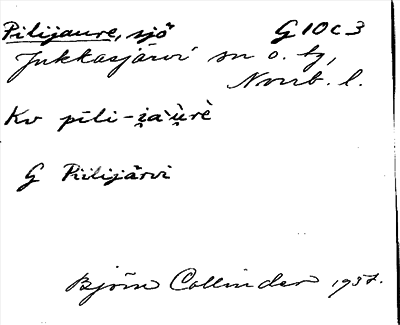 Pilijaure, sjö G10c3
Jukkasjärvi sn o. tg,
Norrb. l.
Kv pīli-i̯a`ù̯rè
G Piilijärvi
Björn Collinder 1937.